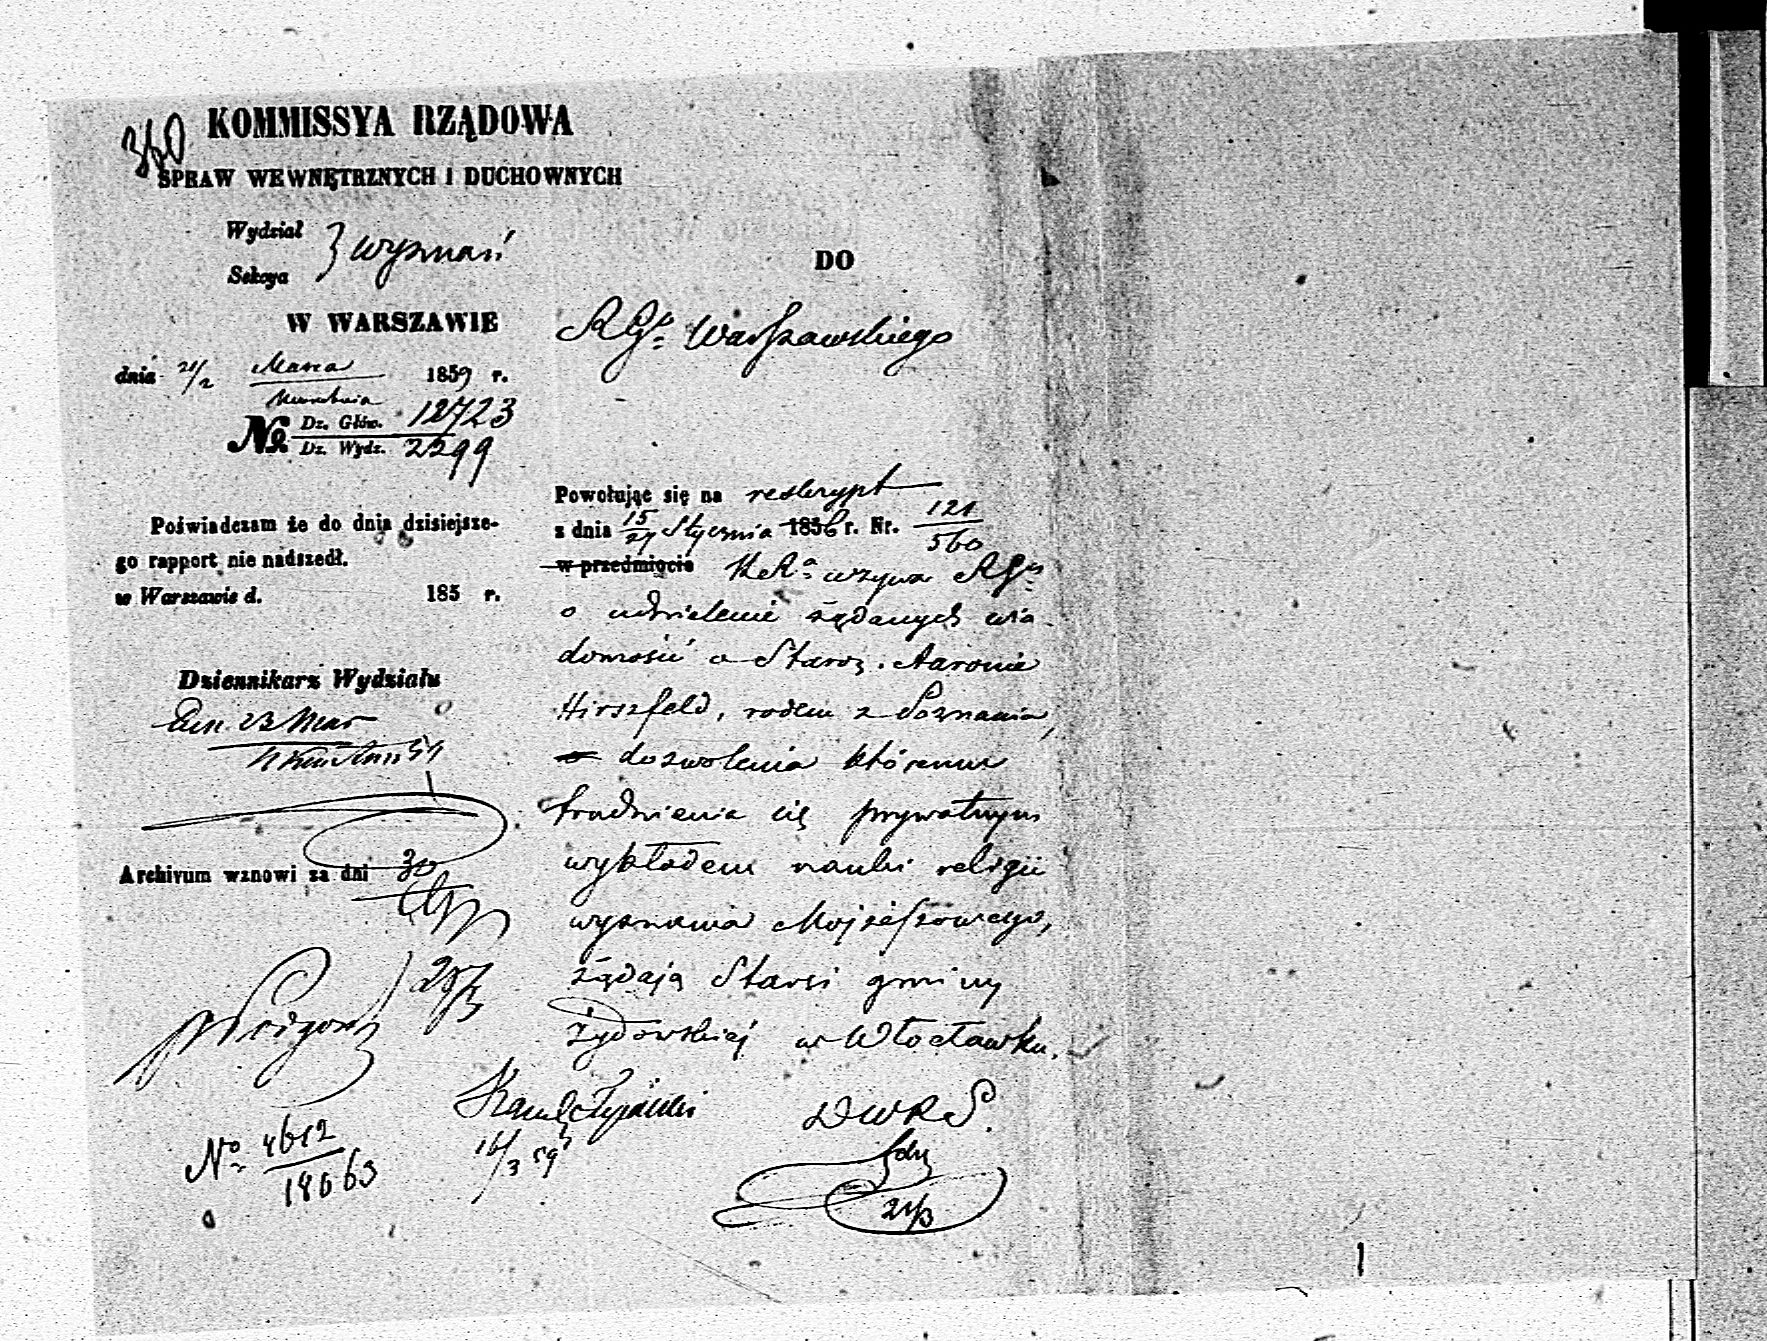 360
KOMMISSYA RZĄDOWA
SPRAW WEWNĘTRZNYCH I DUCHOWNYCH
Wydział
Sekcya } wyznań
W WARSZAWIE
dnia 21/2 Marca 1859 r.
Kwietnia
№ Dz. Głów. 12723
Dz. Wydz. 2299
Poświadczam że do dnia dzisiejsze-
go rapport nie nadszedł.
w Warszawie d. 185 r.
Dziennikarz Wydziału
23 Mar
Archivum wznowi za dni 30
No 4612
18663
DO
RGo Warszawskiego
Powołując się na reskrypt
z dnia 15/27 Stycznia 1856 r. Nr. 121
560
w przedmiocie KRa wzywa RG
o udzielenie żądanych wia-
domości o Staroz. Aaronie
Hirszfeld, rodem z Poznania,
dozwolenia któremu
trudnienia się prywatnym
wykładem nauki religii
wyznania Mojżeszowego,
żądają Starsi gminy
Żydowskiej w Włocławku.
DWRS.
16/3 59
21/3